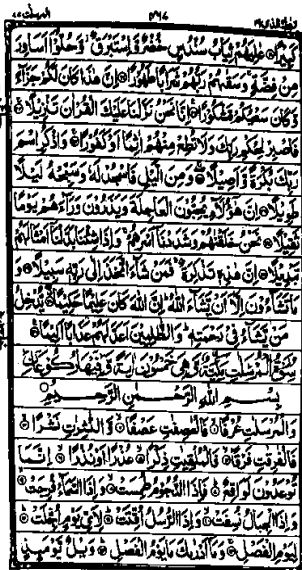 المرسلت ٧٧
٥٢٤
كَبِيرًا ۝ عٰلِيَهُمْ ثِيَابُ سُنْدُسٍ خُضْرٌ وَّاِسْتَبْرَقٌ ۡ وَّحُلُّوْۤا اَسَاوِرَ
مِنْ فِضَّةٍ ۚ وَسَقٰىهُمْ رَبُّهُمْ شَرَابًا طَهُوْرًا ۝ اِنَّ هٰذَا كَانَ لَكُمْ جَزَآءً
وَّكَانَ سَعْيُكُمْ مَّشْكُوْرًا ۝ اِنَّا نَحْنُ نَزَّلْنَا عَلَيْكَ الْقُرْاٰنَ تَنْزِيْلًا ۝
فَاصْبِرْ لِحُكْمِ رَبِّكَ وَلَا تُطِعْ مِنْهُمْ اٰثِمًا اَوْ كَفُوْرًا ۝ وَاذْكُرِ اسْمَ
رَبِّكَ بُكْرَةً وَّاَصِيْلًا ۝ وَمِنَ الَّيْلِ فَاسْجُدْ لَهٗ وَسَبِّحْهُ لَيْلًا
طَوِيْلًا ۝ اِنَّ هٰۤؤُلَآءِ يُحِبُّوْنَ الْعَاجِلَةَ وَيَذَرُوْنَ وَرَآءَهُمْ يَوْمًا
ثَقِيْلًا ۝ نَحْنُ خَلَقْنٰهُمْ وَشَدَدْنَاۤ اَسْرَهُمْ ۚ وَاِذَا شِئْنَا بَدَّلْنَاۤ اَمْثَالَهُمْ
تَبْدِيْلًا ۝ اِنَّ هٰذِهٖ تَذْكِرَةٌ ۚ فَمَنْ شَآءَ اتَّخَذَ اِلٰى رَبِّهٖ سَبِيْلًا ۝ وَمَا
تَشَآءُوْنَ اِلَّاۤ اَنْ يَّشَآءَ اللّٰهُ ۭ اِنَّ اللّٰهَ كَانَ عَلِيْمًا حَكِيْمًا ۝ يُّدْخِلُ
مَنْ يَّشَآءُ فِيْ رَحْمَتِهٖ ۭ وَالظّٰلِمِيْنَ اَعَدَّ لَهُمْ عَذَابًا اَلِيْمًا ۝
سُوْرَةُ الْمُرْسَلٰتِ مَكِّيَّةٌ وَّهِيَ خَمْسُوْنَ اٰيَةً وَّفِيْهَا رُكُوْعَانِ
بِسْمِ اللّٰهِ الرَّحْمٰنِ الرَّحِيْمِ ۝
وَالْمُرْسَلٰتِ عُرْفًا ۝ فَالْعٰصِفٰتِ عَصْفًا ۝ وَّالنّٰشِرٰتِ نَشْرًا ۝
فَالْفٰرِقٰتِ فَرْقًا ۝ فَالْمُلْقِيٰتِ ذِكْرًا ۝ عُذْرًا اَوْ نُذْرًا ۝ اِنَّمَا
تُوْعَدُوْنَ لَوَاقِعٌ ۝ فَاِذَا النُّجُوْمُ طُمِسَتْ ۝ وَاِذَا السَّمَآءُ فُرِجَتْ ۝
وَاِذَا الْجِبَالُ نُسِفَتْ ۝ وَاِذَا الرُّسُلُ اُقِّتَتْ ۝ لِاَيِّ يَوْمٍ اُجِّلَتْ ۝
لِيَوْمِ الْفَصْلِ ۝ وَمَاۤ اَدْرٰىكَ مَا يَوْمُ الْفَصْلِ ۝ وَيْلٌ يَّوْمَىِٕذٍ